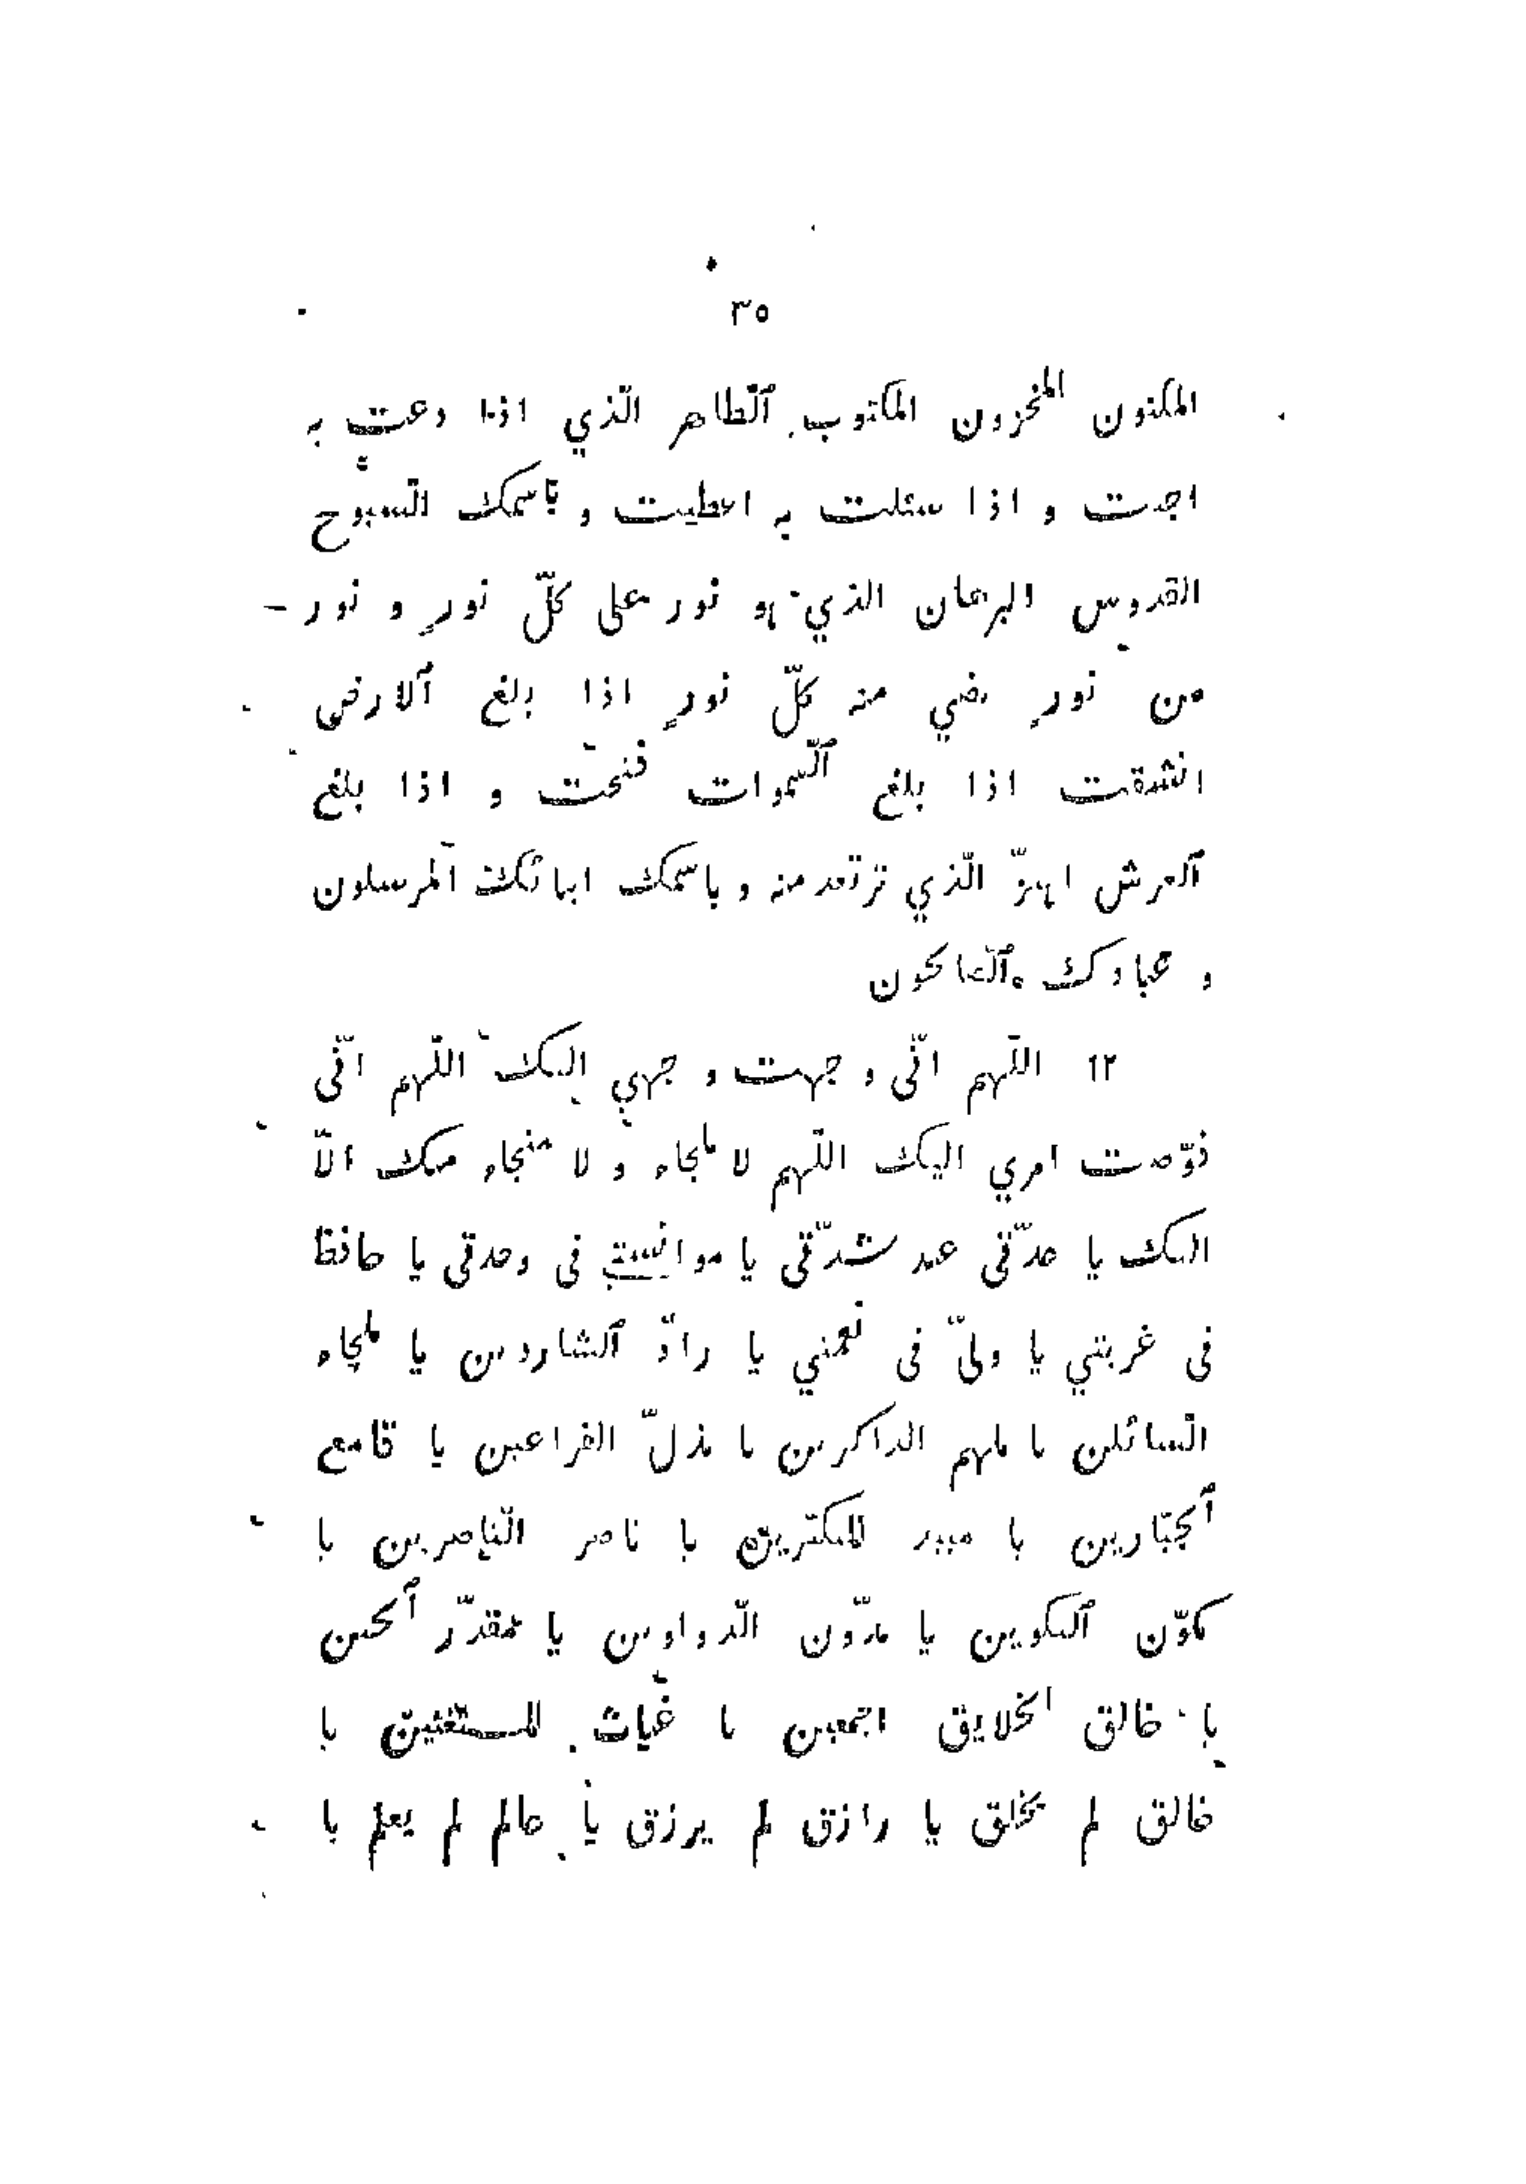 ٣٥
المكنون المخزون المكتوب الطاهر الّذي اذا دعت به
اجبت و اذا سئلت به اعطيت و باسمك السّبوح
القدوس البرهان الذي هو نور على كلّ نورٍ و نور
من نورٍ يضي منه كلّ نورٍ اذا بلغ الارض
انشقت اذا بلغ السّموات فتحت و اذا بلغ
العرش اهتزّ الّذي ترتعد منه و باسمك انبيائك المرسلون
و عبادك الصّالحون
١٢ اللّهم انّى وجهت وجهي اليك اللّهم انّى
فوّضت امري اليك اللّهم لا ملجاء و لا منجاء منك الاّ
اليك يا عدّتى عند شدّتى يا موانستي فى وحدتى يا حافظا
فى غربتي يا وليّ فى نعمتي يا رادّ الشاردين يا ملجاء
السّائلين يا ملهم الذاكرين يا مذلّ الفراعين يا قامع
الجبّارين يا مبير المتكبّرين يا ناصر النّاصرين يا
مكوّن التكوين يا مدّون الدّواوين يا مقدّر الحين
يا خالق الخلايق اجمعين يا غياث المستغثين يا
خالق لم يخلق يا رازق لم يرزق يا عالم لم يعلم يا